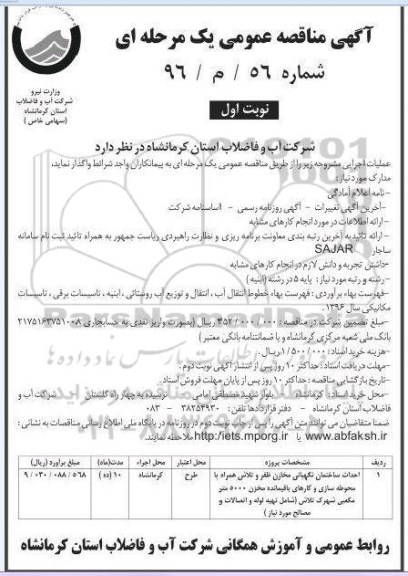 آگهی مناقصه عمومی یک مرحله ای
شماره ۵۶ / م / ۹۶
وزارت نیرو
شرکت آب و فاضلاب
استان کرمانشاه
(سهامی خاص)
نوبت اول
شرکت آب و فاضلاب استان کرمانشاه در نظر دارد
عملیات اجرایی مشروحه زیر را از طریق مناقصه عمومی یک مرحله ای به پیمانکاران واجد شرائط واگذار نماید،
مدارک مورد نیاز:
-نامه اعلام آمادگی
-آخرین آگهی تغییرات - آگهی روزنامه رسمی - اساسنامه شرکت
-ارائه اطلاعات در مورد انجام کارهای مشابه
-ارائه تائیدیه آخرین رتبه بندی معاونت برنامه ریزی و نظارت راهبردی ریاست جمهور به همراه تائید ثبت نام سامانه
ساجار SAJAR
-داشتن تجربه و دانش لازم در انجام کارهای مشابه
-رشته و رتبه مورد نیاز: پایه ۵ در رشته (ابنیه)
-فهرست بهاء برآوردی: فهرست بهاء خطوط انتقال آب، انتقال و توزیع آب روستائی، ابنیه، تاسیسات برقی، تاسیسات
مکانیکی سال ۱۳۹۶.
-مبلغ تضمین شرکت در مناقصه: ۴۵۲/۰۰۰/۰۰۰ ریال (بصورت واریز نقدی به حساب جاری ۲۱۷۵۱۶۳۷۵۱۰۰۸
بانک ملی شعبه مرکزی کرمانشاه و یا ضمانتنامه بانکی معتبر)
-هزینه خرید اسناد: ۱/۵۰۰/۰۰۰ ریال.
-مهلت دریافت اسناد: حداکثر ۱۰ روز پس از انتشار آگهی نوبت دوم.
-تاریخ بازگشایی مناقصه: حداکثر ۱۰ روز پس از پایان مهلت فروش اسناد.
-محل خرید اسناد: کرمانشاه - بلوار شهید مصطفی امامی - نرسیده به چهار راه گلستان - شرکت آب و
فاضلاب استان کرمانشاه - دفتر قراردادها تلفن: ۳۸۲۵۴۹۳۰ - ۰۸۳
ضمنا متقاضیان می توانند متن آگهی را پس از چاپ نوبت دوم در روزنامه در پایگاه ملی اطلاع رسانی مناقصات به نشانی:
www.abfaksh.ir یا http://iets.mporg.ir ملاحظه نمایند.
ردیف مشخصات پروژه محل اعتبار محل اجراء مدت(ماه) مبلغ برآورد (ریال)
۱ احداث ساختمان نگهبانی مخازن ظفر و تلاش همراه با طرح کرمانشاه ۱۰ (ده) ۹/۰۳۰/۰۸۸/۵۶۸
محوطه سازی و کارهای باقیمانده مخزن ۵۰۰۰ متر
مکعبی شهرک تلاش (شامل تهیه لوله و اتصالات و
مصالح مورد نیاز)
روابط عمومی و آموزش همگانی شرکت آب و فاضلاب استان کرمانشاه
ParsNamadData